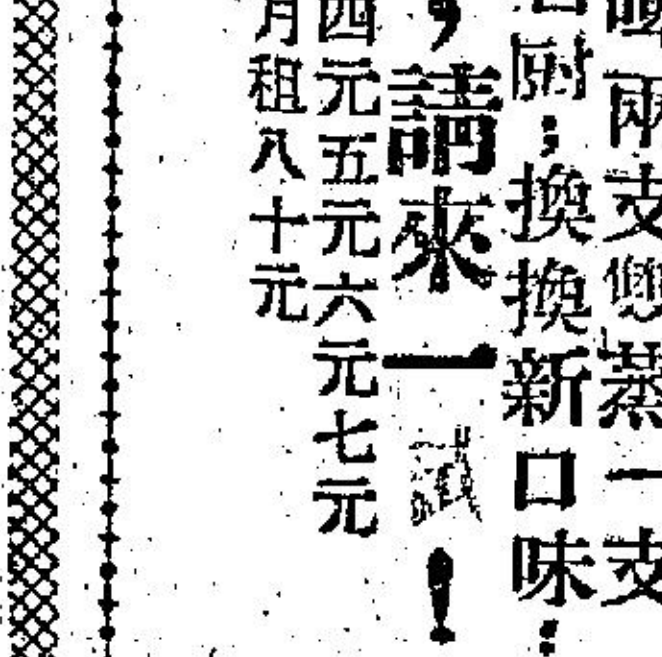 兩支蒸一支
厨；換換新口味：
，請來一試！
四元五元六元七元
月租八十元